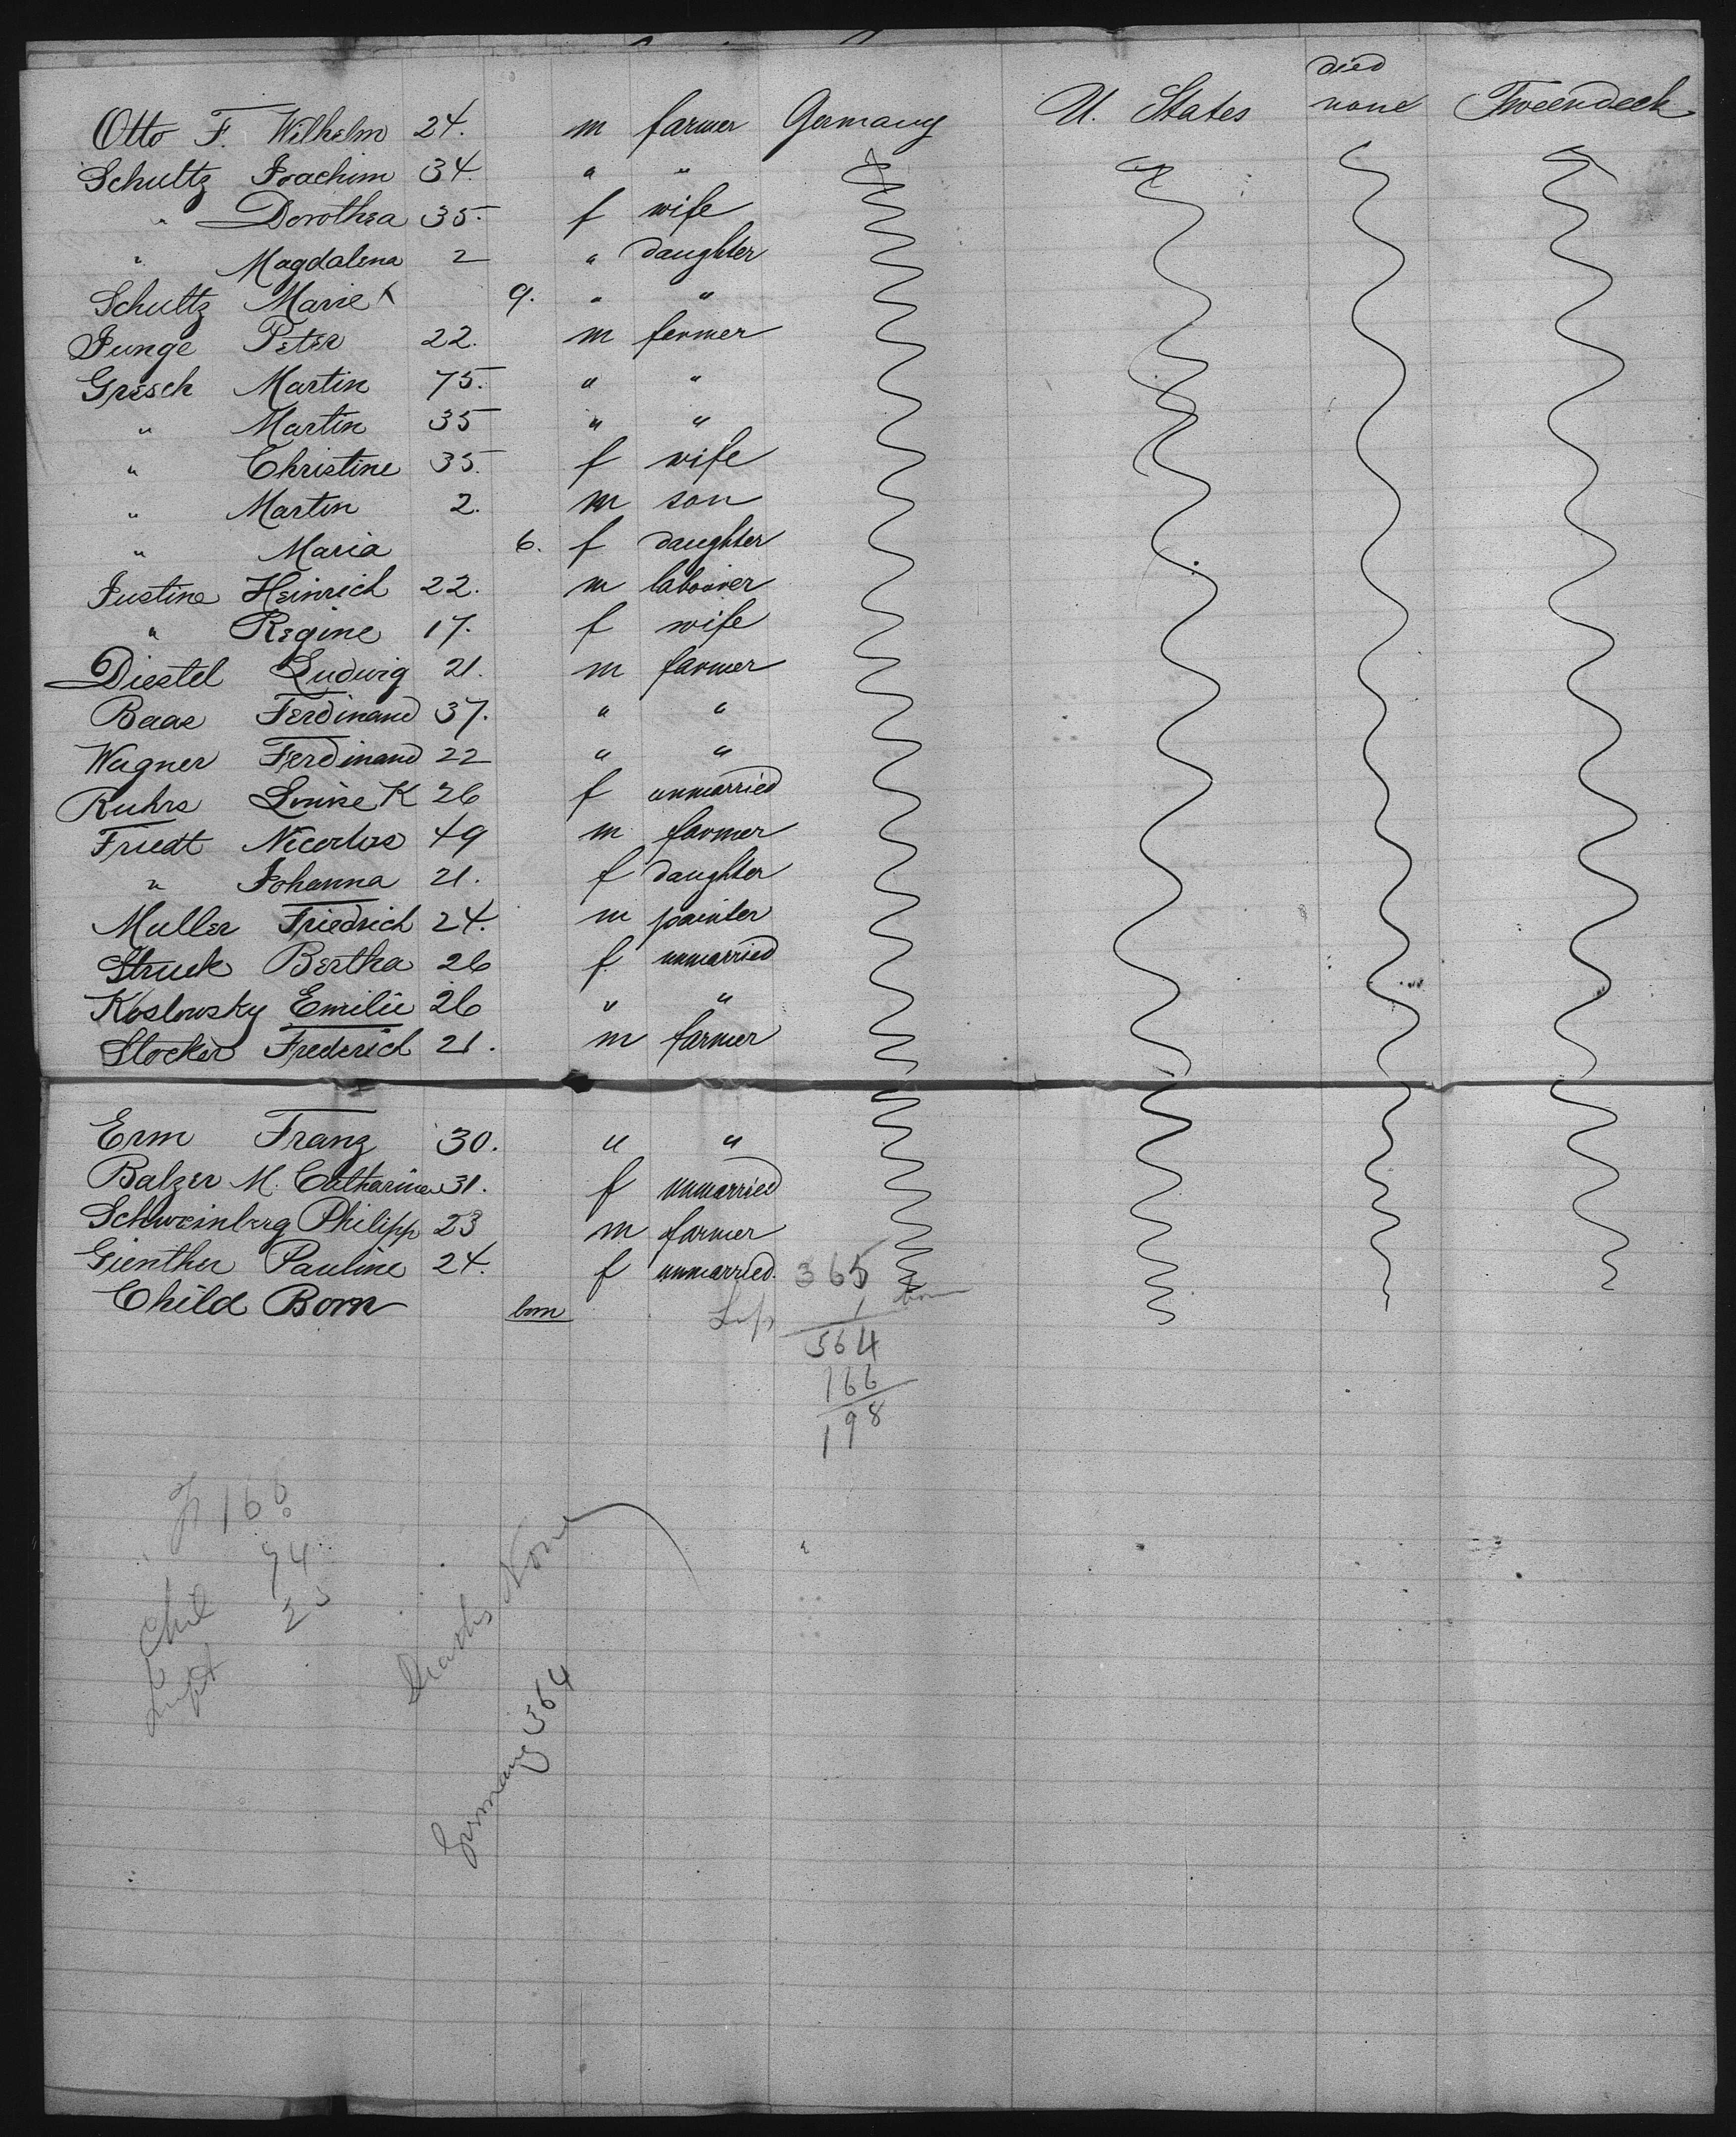 died
Otto F. Wilhelm 24. m farmer Germany U. States none Tweendeck
Schultz Joachim 34. " "
" Dorothea 35. f wife
" Magdalena 2 " daughter
Schultz Marie 9. " "
Junge Peter 22. m farmer
Gresch Martin 75. " "
" Martin 35 " "
" Christine 35. f wife
" Martin 2. m son
" Maria 6. f daughter
Justine Heinrich 22. m labourer
" Regine 17. f wife
Diestel Ludwig 21. m farmer
Baas Ferdinand 37. " "
Wagner Ferdinand 22 " "
Ruhrs Louise K 26 f unmarried
Friedt 49 m farmer
" Johanna 21. f daughter
Muller Friedrich 24. m painter
Struck Bertha 26 f unmarried
Koslowsky Emilie 26 " "
Stocker Frederich 21. m farmer
Erm Franz 30. " "
Balzer M. Catharina 31. f unmarried
Schweinberg Philipp 23 m farmer
Gienther Pauline 24. f unmarried. 365
Child Born born 1 born
364
166
198
166
94
Chil 25
Deaths None
Germany 364